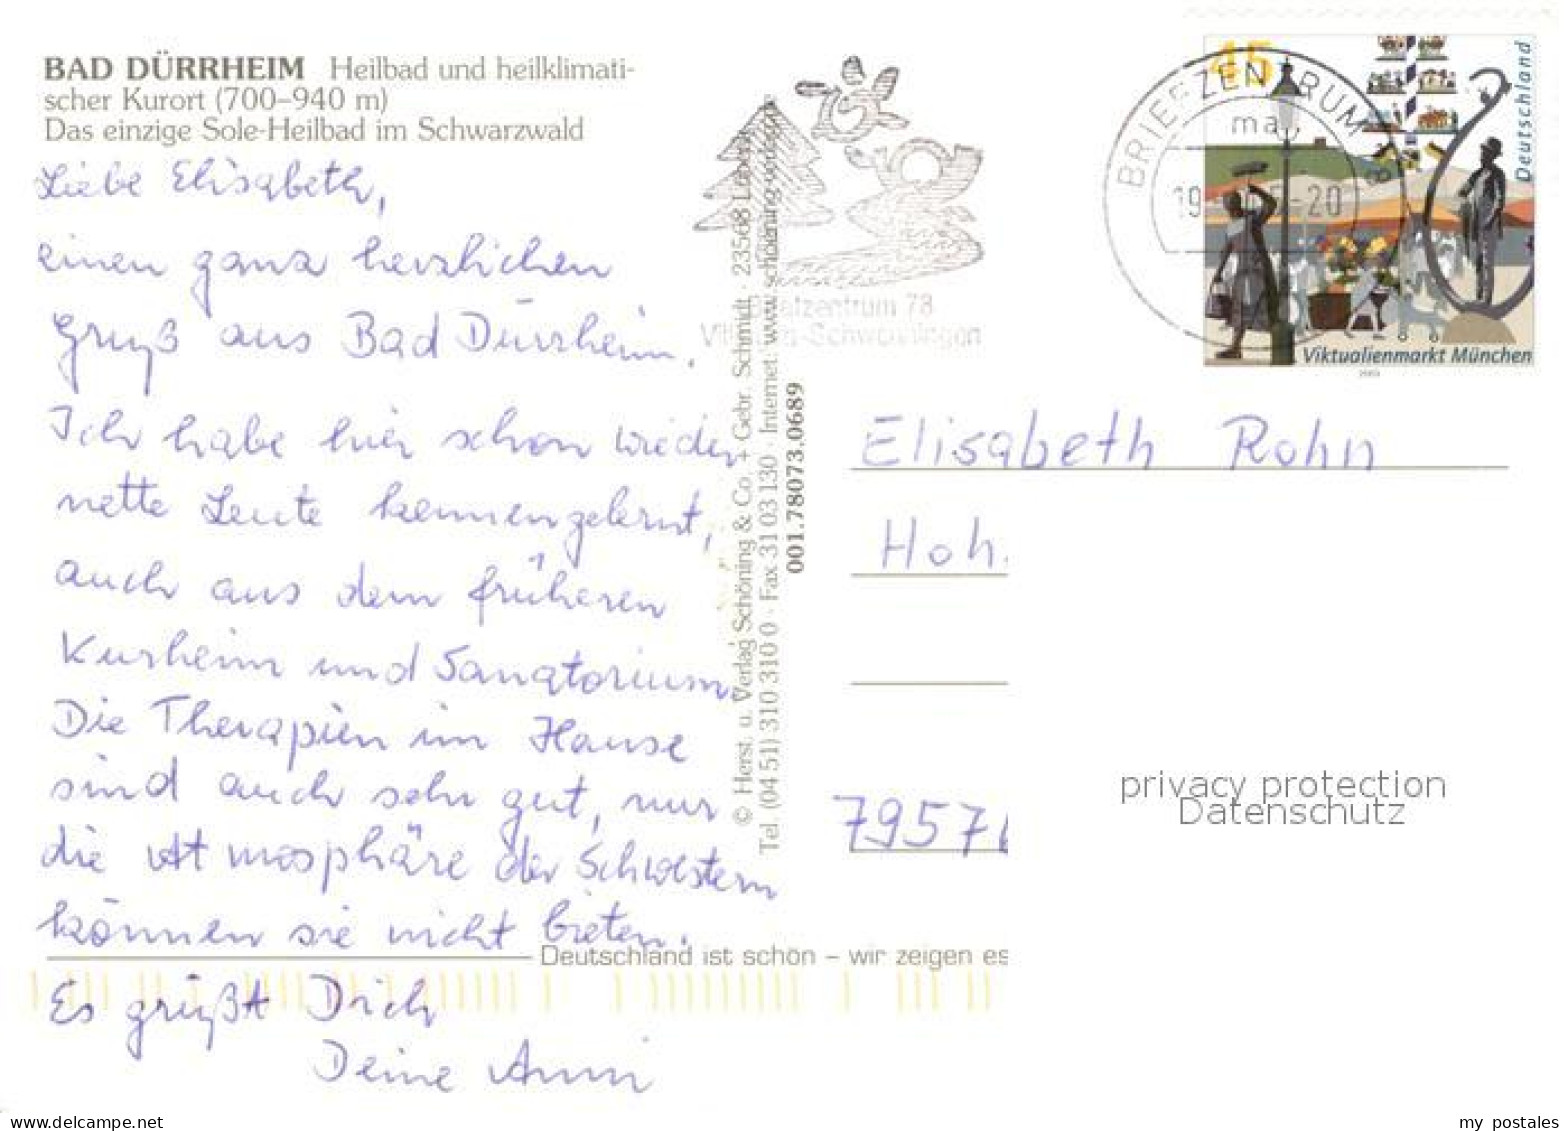 BAD DÜRRHEIM Heilbad und heilklimati-
scher Kurort (700–940 m)
Das einzige Sole-Heilbad im Schwarzwald
Liebe Elisabeth,
einen ganz herzlichen
Gruß aus Bad Dürrheim.
Ich habe hier schon wieder
nette Leute kennengelernt,
auch aus dem früheren
Kurheim und Sanatorium.
Die Therapien im Hause
sind auch sehr gut, nur
die Atmosphäre der Schwestern
können sie nicht bieten.
Es grüßt Dich
Deine Anni
© Herst. u. Verlag Schöning & Co. + Gebr. Schmidt · 23568 Lübeck
Tel. (04 51) 310 310 0 · Fax 31 03 130 · Internet: www.schoening-verlag.de
001.78073.0689
Briefzentrum 78
Villingen-Schwenningen
BRIEFZENTRUM
ma
19 -20
45
Deutschland
Viktualienmarkt München
2003
Elisabeth Rohn
Hoh.
79576
privacy protection
Datenschutz
Deutschland ist schön – wir zeigen es
my postales